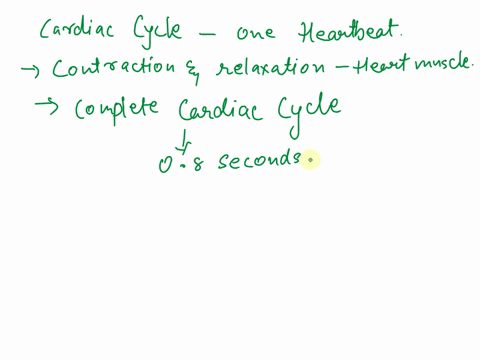 Cardiac Cycle – one Heartbeat.
→ Contraction & relaxation – Heart muscle.
→ Complete Cardiac Cycle
↓
0.8 seconds